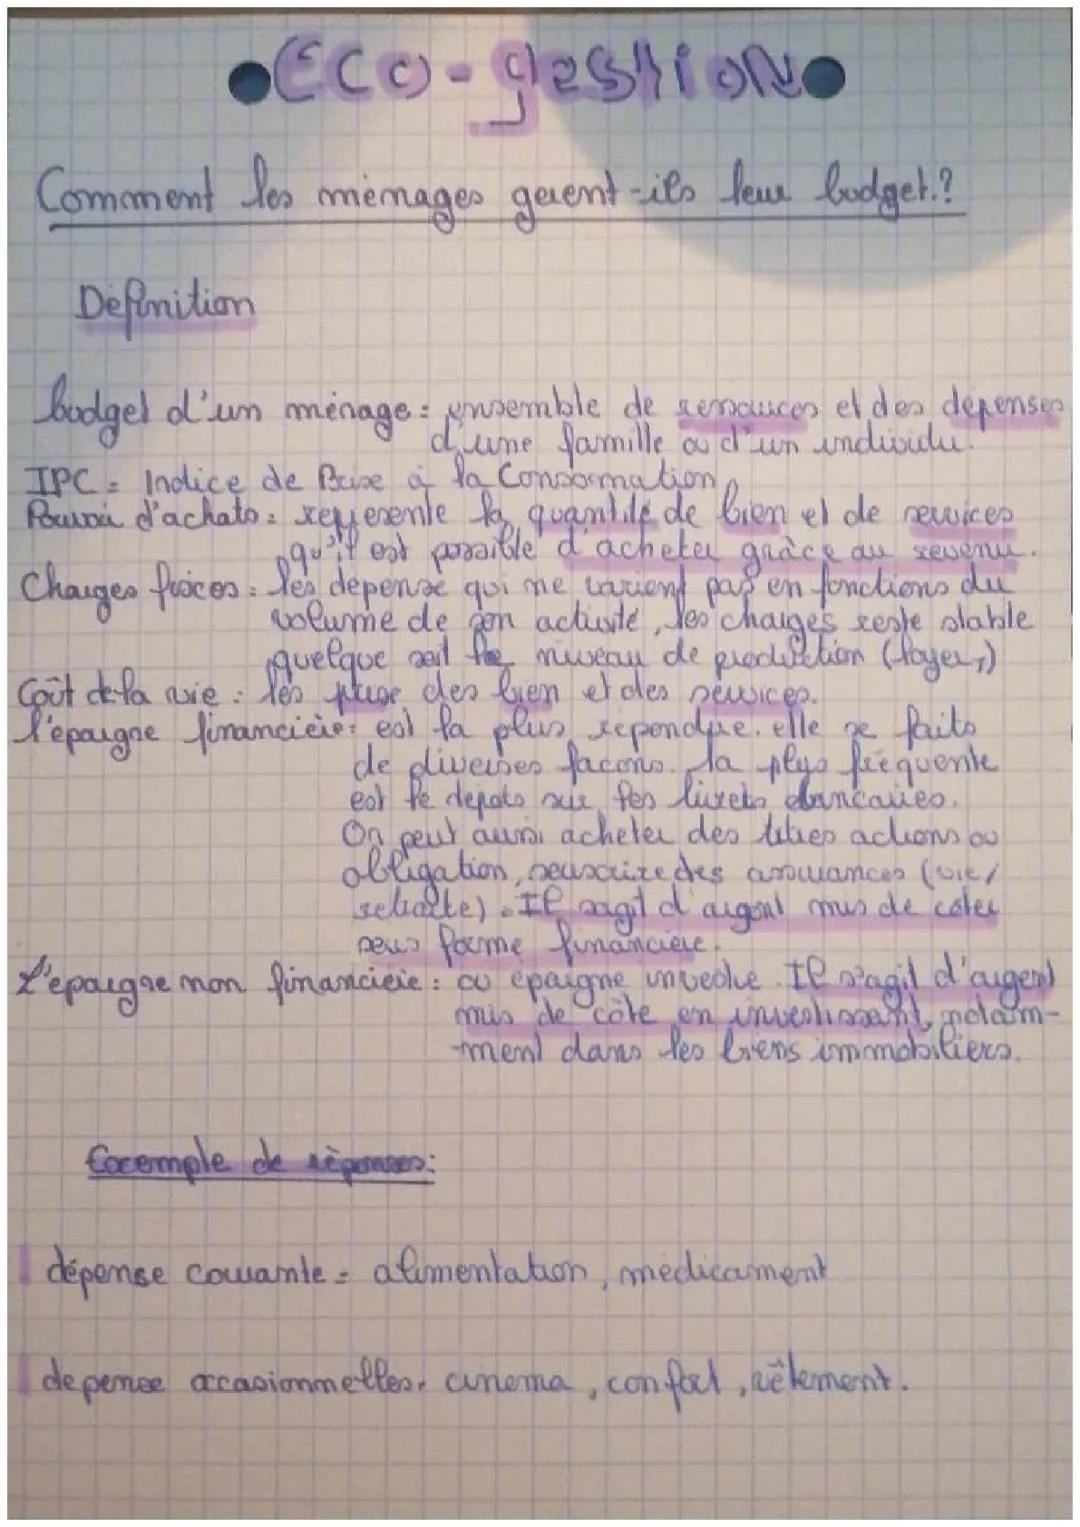 Eco-gestion
Comment les ménages gerent-ils leur budget.?
Définition
budget d'un ménage: ensemble de ressources et des dépenses
d'une famille ou d'un individu.
IPC = Indice de Prise à la Consommation
Pouvoir d'achats: represente la quantité de bien et de services
qu'il est possible d'acheter grâce au revenu.
Charges fixces: les dépense qui ne varient pas en fonctions du
volume de son activité, les charges reste stable
quelque soit le niveau de production (loyer,)
Coût de la vie: les prise des bien et des services.
l'épargne financière: est la plus répondue. elle se faits
de diverses facons. la plus fréquente
est le depots sur les livrets bancaires.
On peut aussi acheter des titres actions ou
obligation, souscrire des assurances (vie/
retraite). Il sagit d'argent mis de coter
sous forme financière.
L'epargne non financière: ou epargne investie. Il s'agit d'argent
mis de côte en investissant, notam-
-ment dans les biens immobiliers.
Excemple de réponses:
dépense courante = alimentation, medicament
depense occasionnelles. cinema, confort, vêtement.